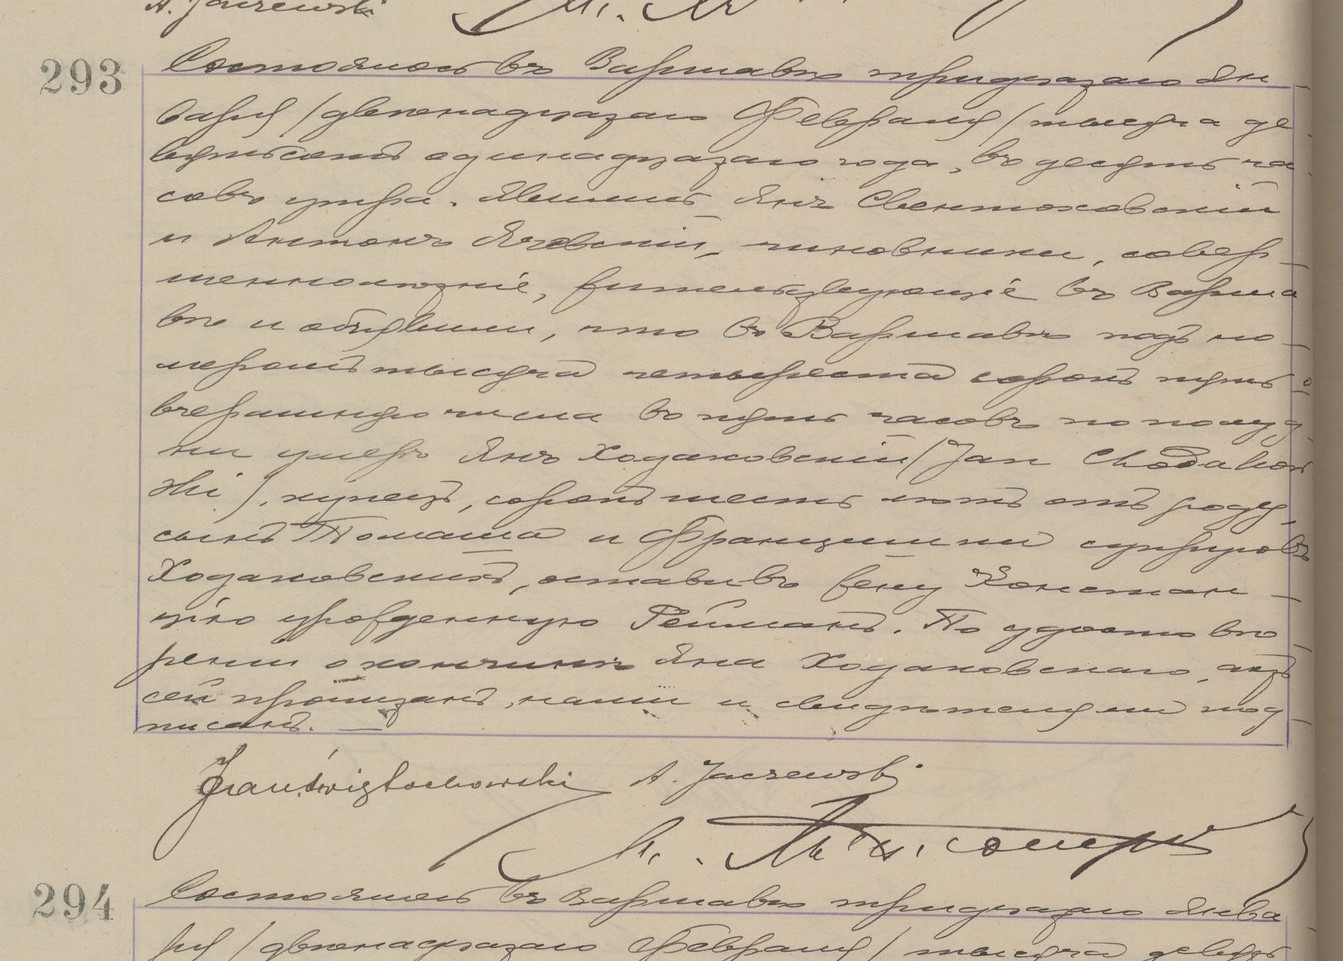 A. Jaczewski
293
Состоялось въ Варшавѣ тридцатаго Ян-
варя /двѣнадцатаго Февраля/ тысяча де-
вятьсотъ одинадцатаго года, въ десять ча-
совъ утра. Явились Янъ Свентоховскій
и Антонъ Ячевскій, чиновники, совер-
шеннолѣтніе, жительствующіе въ Варша-
вѣ и объявили, что въ Варшавѣ подъ но-
меромъ тысяча четыреста сорокъ пять
вчерашняго числа въ пять часовъ по полуд-
ни умеръ Янъ Ходаковскій /Jan Chodakow-
ski/, купецъ, сорокъ шесть лѣтъ отъ роду,
сынъ Томаша и Францишки супруговъ
Ходаковскихъ, оставивъ жену Констан-
цію урожденную Рейманъ. По удостовѣ-
реніи о кончинѣ Яна Ходаковскаго, актъ
сей прочитанъ, нами и свидѣтелями под-
писанъ. —
Jan Świętochowski A. Jaczewski
294
Состоялось въ Варшавѣ тридцатаго Янва-
ря /двѣнадцатаго Февраля/ тысяча девять